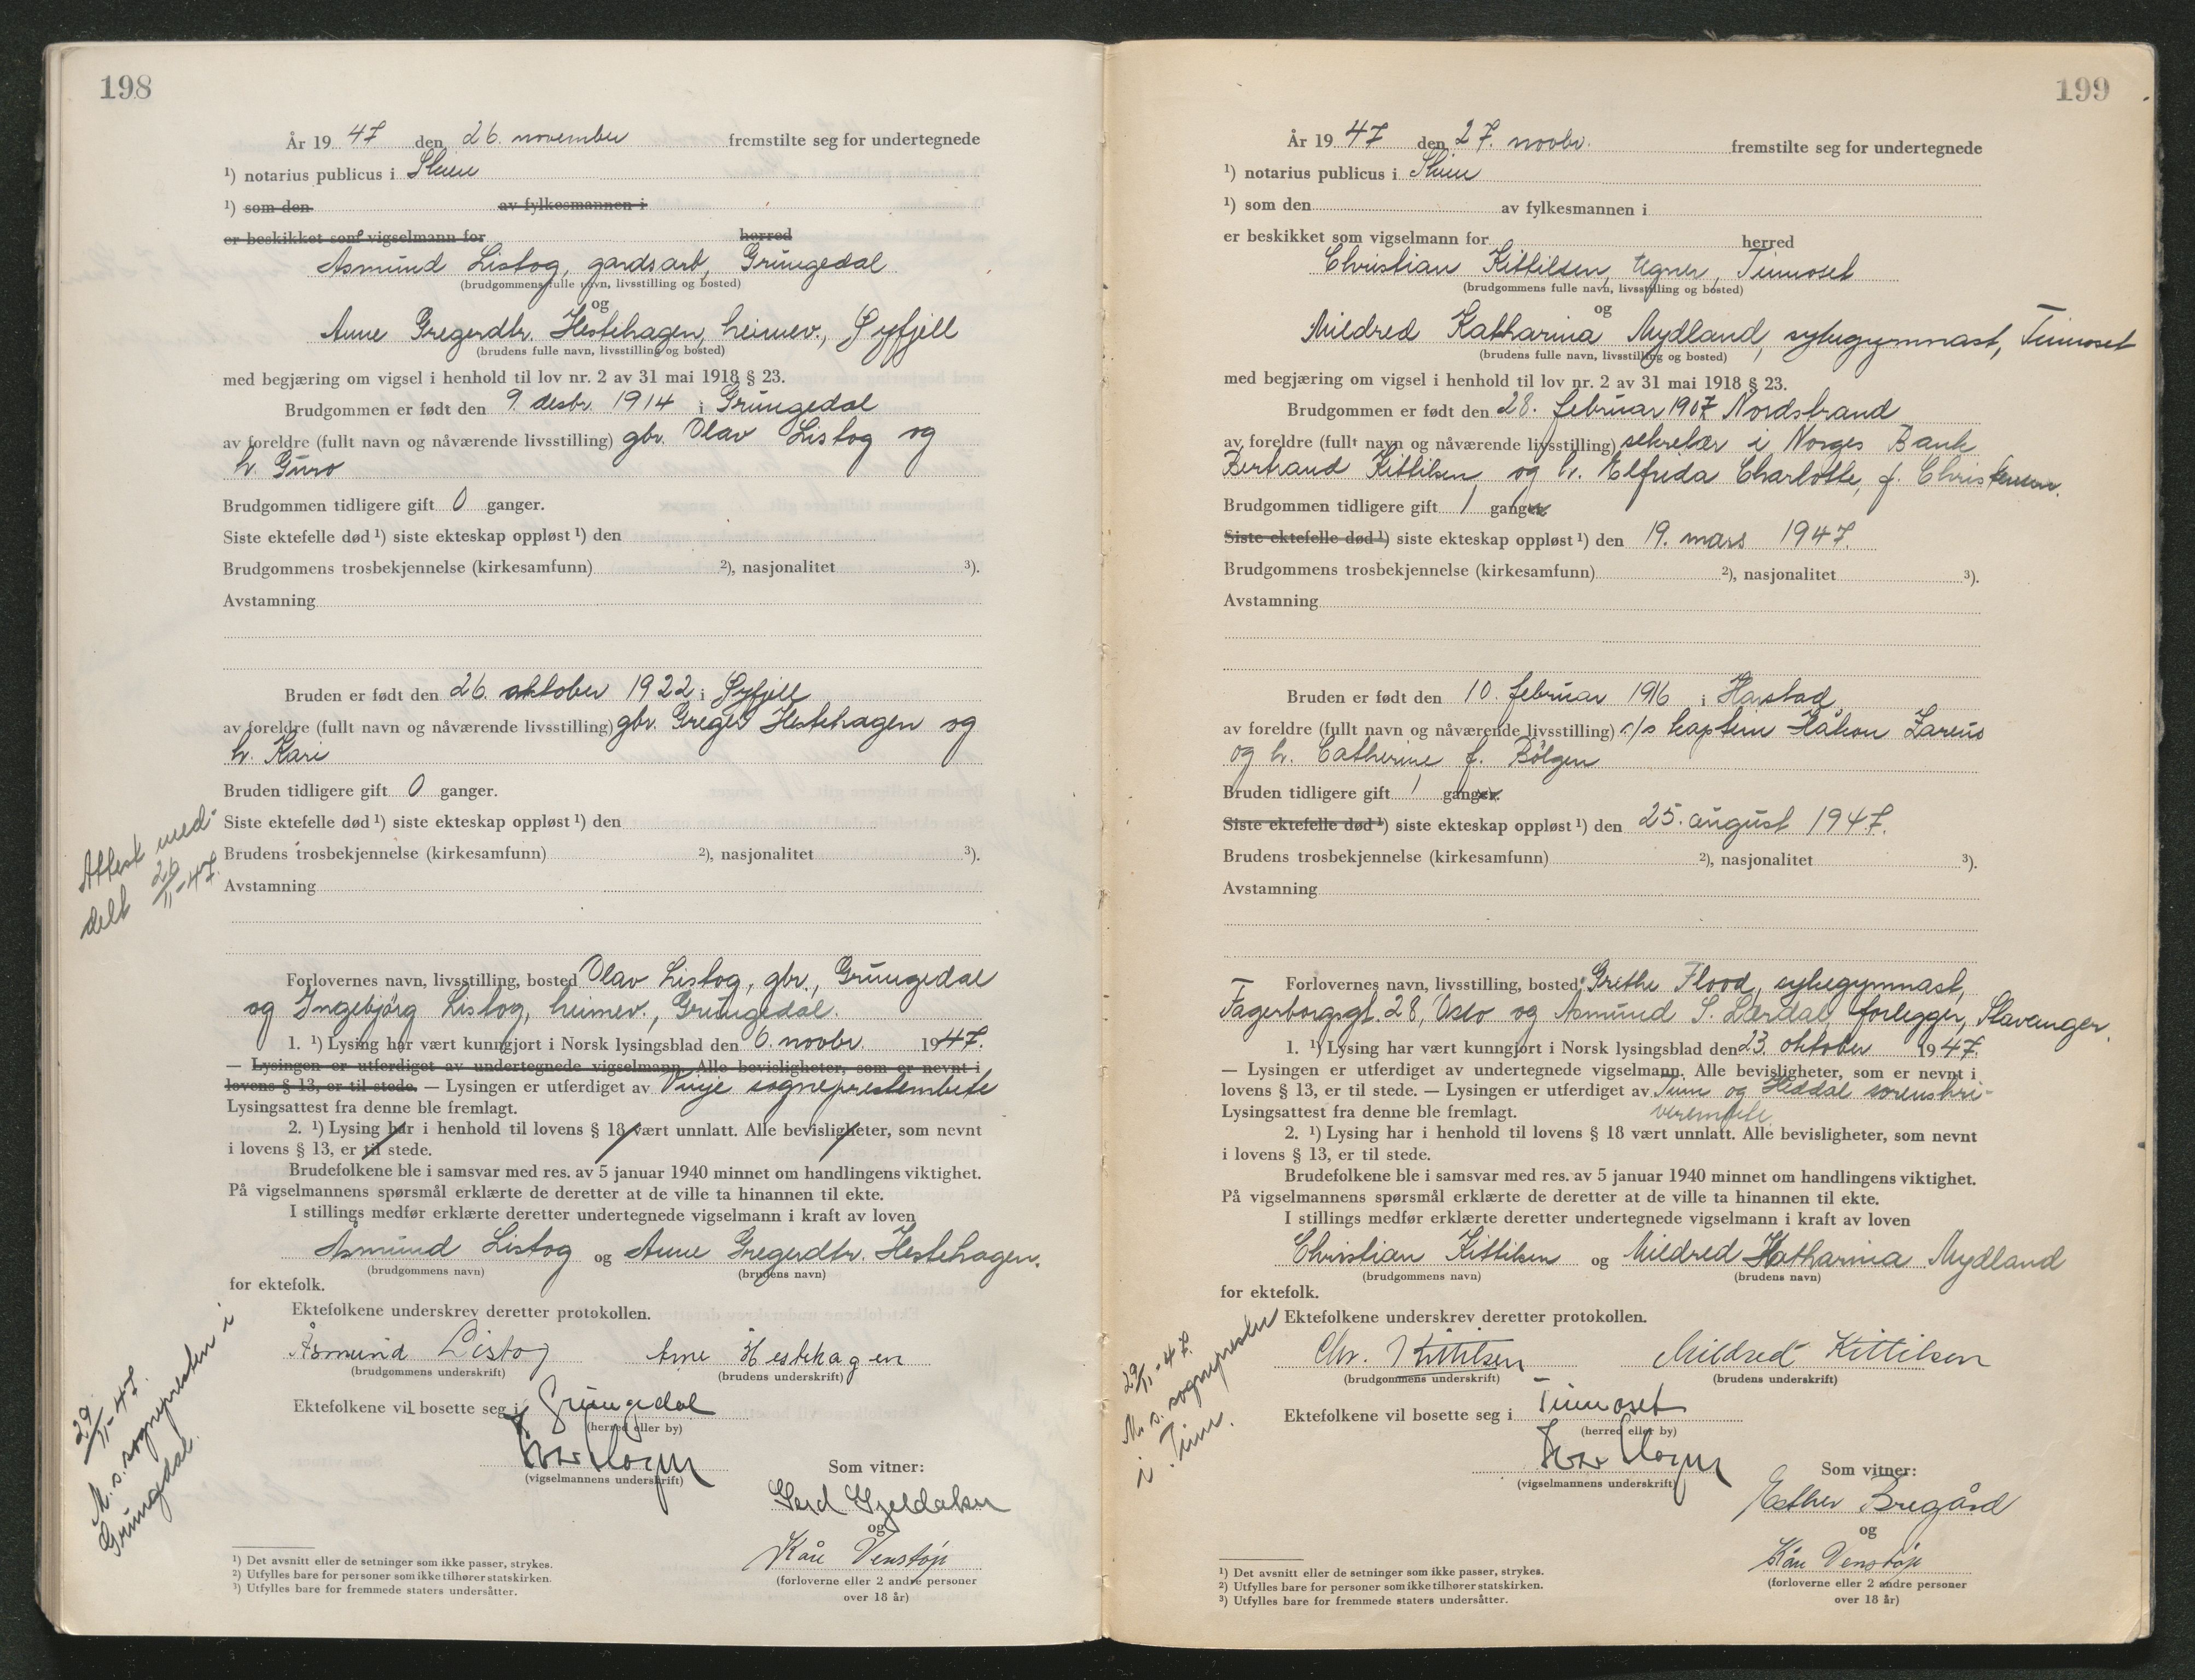 198
År 19 47 den 26. november fremstilte seg for undertegnede
¹) notarius publicus i Skien
¹) som den av fylkesmannen i
er beskikket som vigselmann for herred
Åsmund Listog, gardsarb, Grungedal
(brudgommens fulle navn, livsstilling og bosted)
og
Anne Gregerdtr. Hestehagen, heimev., Øyfjell
(brudens fulle navn, livsstilling og bosted)
med begjæring om vigsel i henhold til lov nr. 2 av 31 mai 1918 § 23.
Brudgommen er født den 9. desbr. 1914 i Grungedal
av foreldre (fullt navn og nåværende livsstilling) gbr. Olav Listog og
h. Guro
Brudgommen tidligere gift 0 ganger.
Siste ektefelle død ¹) siste ekteskap oppløst ¹) den
Brudgommens trosbekjennelse (kirkesamfunn) ²), nasjonalitet ³).
Avstamning
Bruden er født den 26. oktober 1922 i Øyfjell
av foreldre (fullt navn og nåværende livsstilling) gbr. Greger Hestehagen og
h. Kari
Bruden tidligere gift 0 ganger.
Siste ektefelle død ¹) siste ekteskap oppløst ¹) den
Brudens trosbekjennelse (kirkesamfunn) ²), nasjonalitet ³).
Avstamning
Attest med-
delt 26/11-47.
Forlovernes navn, livsstilling, bosted Olav Listog, gbr., Grungedal
og Ingebjörg Listog, heimev., Grungedal.
1. ¹) Lysing har vært kunngjort i Norsk lysingsblad den 6. novbr. 1947.
— Lysingen er utferdiget av undertegnede vigselmann. Alle bevisligheter, som er nevnt i
lovens § 13, er til stede. — Lysingen er utferdiget av Vinje sogneprestembete
Lysingsattest fra denne ble fremlagt.
2. ¹) Lysing har i henhold til lovens § 18 vært unnlatt. Alle bevisligheter, som nevnt
i lovens § 13, er til stede.
Brudefolkene ble i samsvar med res. av 5 januar 1940 minnet om handlingens viktighet.
På vigselmannens spørsmål erklærte de deretter at de ville ta hinannen til ekte.
I stillings medfør erklærte deretter undertegnede vigselmann i kraft av loven
Åsmund Listog og Anne Gregerdtr. Hestehagen.
(brudgommens navn) (brudens navn)
for ektefolk.
Ektefolkene underskrev deretter protokollen.
Åsmund Listog Anne Hestehagen
(brudgommens underskrift) (brudens underskrift)
Ektefolkene vil bosette seg i Grungedal
(herred eller by)
(vigselmannens underskrift)
29/11-47.
M. s. sognepresten i
Grungedal.
Som vitner:
Gerd Gjeldaker
og
Kåre Venstøp
(forloverne eller 2 andre personer
over 18 år)
¹) Det avsnitt eller de setninger som ikke passer, strykes.
²) Utfylles bare for personer som ikke tilhører statskirken.
³) Utfylles bare for fremmede staters undersåtter.
199
År 19 47 den 27. novbr. fremstilte seg for undertegnede
¹) notarius publicus i Skien
¹) som den av fylkesmannen i
er beskikket som vigselmann for herred
Christian Kittilsen, tegner, Tinnoset
(brudgommens fulle navn, livsstilling og bosted)
og
Mildred Katharina Mydland, sykegymnast, Tinnoset
(brudens fulle navn, livsstilling og bosted)
med begjæring om vigsel i henhold til lov nr. 2 av 31 mai 1918 § 23.
Brudgommen er født den 28. februar 1907 Nordstrand
av foreldre (fullt navn og nåværende livsstilling) sekretær i Norges Bank
Bertrand Kittilsen, og h. Elfreda Charlotte, f. Christensen.
Brudgommen tidligere gift 1 ganger
Siste ektefelle død ¹) siste ekteskap oppløst ¹) den 19. mars 1947.
Brudgommens trosbekjennelse (kirkesamfunn) ²), nasjonalitet ³).
Avstamning
Bruden er født den 10. februar 1916 i Harstad
av foreldre (fullt navn og nåværende livsstilling) d/s kaptein Håkon Zareus
og h. Catherine f. Bölgen
Bruden tidligere gift 1 ganger.
Siste ektefelle død ¹) siste ekteskap oppløst ¹) den 25. august 1947.
Brudens trosbekjennelse (kirkesamfunn) ²), nasjonalitet ³).
Avstamning
Forlovernes navn, livsstilling, bosted Grethe Flood, sykegymnast,
Fagerborggt. 28, Oslo og Åsmund S. Lærdal, forlegger, Stavanger.
1. ¹) Lysing har vært kunngjort i Norsk lysingsblad den 23. oktober 1947.
— Lysingen er utferdiget av undertegnede vigselmann. Alle bevisligheter, som er nevnt i
lovens § 13, er til stede. — Lysingen er utferdiget av Tinn og Heddal sorenskri-
verembete.
Lysingsattest fra denne ble fremlagt.
2. ¹) Lysing har i henhold til lovens § 18 vært unnlatt. Alle bevisligheter, som nevnt
i lovens § 13, er til stede.
Brudefolkene ble i samsvar med res. av 5 januar 1940 minnet om handlingens viktighet.
På vigselmannens spørsmål erklærte de deretter at de ville ta hinannen til ekte.
I stillings medfør erklærte deretter undertegnede vigselmann i kraft av loven
Christian Kittilsen og Mildred Katharina Mydland
(brudgommens navn) (brudens navn)
for ektefolk.
Ektefolkene underskrev deretter protokollen.
Chr. Kittilsen Mildred Kittilsen
(brudgommens underskrift) (brudens underskrift)
Ektefolkene vil bosette seg i Tinnoset
(herred eller by)
(vigselmannens underskrift)
29/11-47.
M. s. sognepresten
i Tinn.
Som vitner:
Esther Bregård
og
Kåre Venstøp
(forloverne eller 2 andre personer
over 18 år)
¹) Det avsnitt eller de setninger som ikke passer, strykes.
²) Utfylles bare for personer som ikke tilhører statskirken.
³) Utfylles bare for fremmede staters undersåtter.